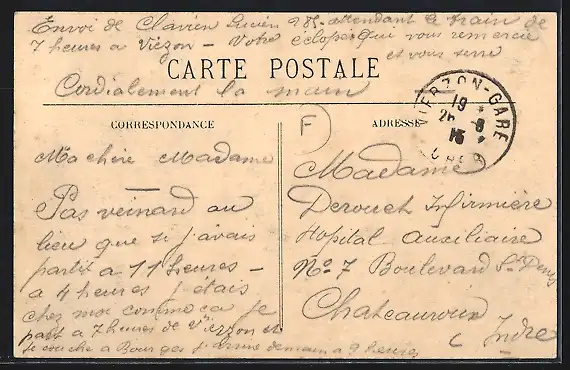 Envoi de Clavien Lucien 285. attendant le train de
7 heures a Viezon - Votre éclopé qui vous remercie
et vous serre
CARTE POSTALE
Cordialement la main
CORRESPONDANCE
Ma chère Madame
Pas veinard au
lieu que si j'avais
partit a 11 heures -
a 4 heures j étais
chez moi comme ca je
part a 7 heures de Vierzon et
je couche a Bourges j'arrive demain a 9 heures
F
ADRESSE
VIERZON-GARE
19
26 - 8
15
CHER
Madame
Derouet Infirmière
Hopital Auxiliaire
No 7 Boulevard St Denis
Chateauroux
Indre